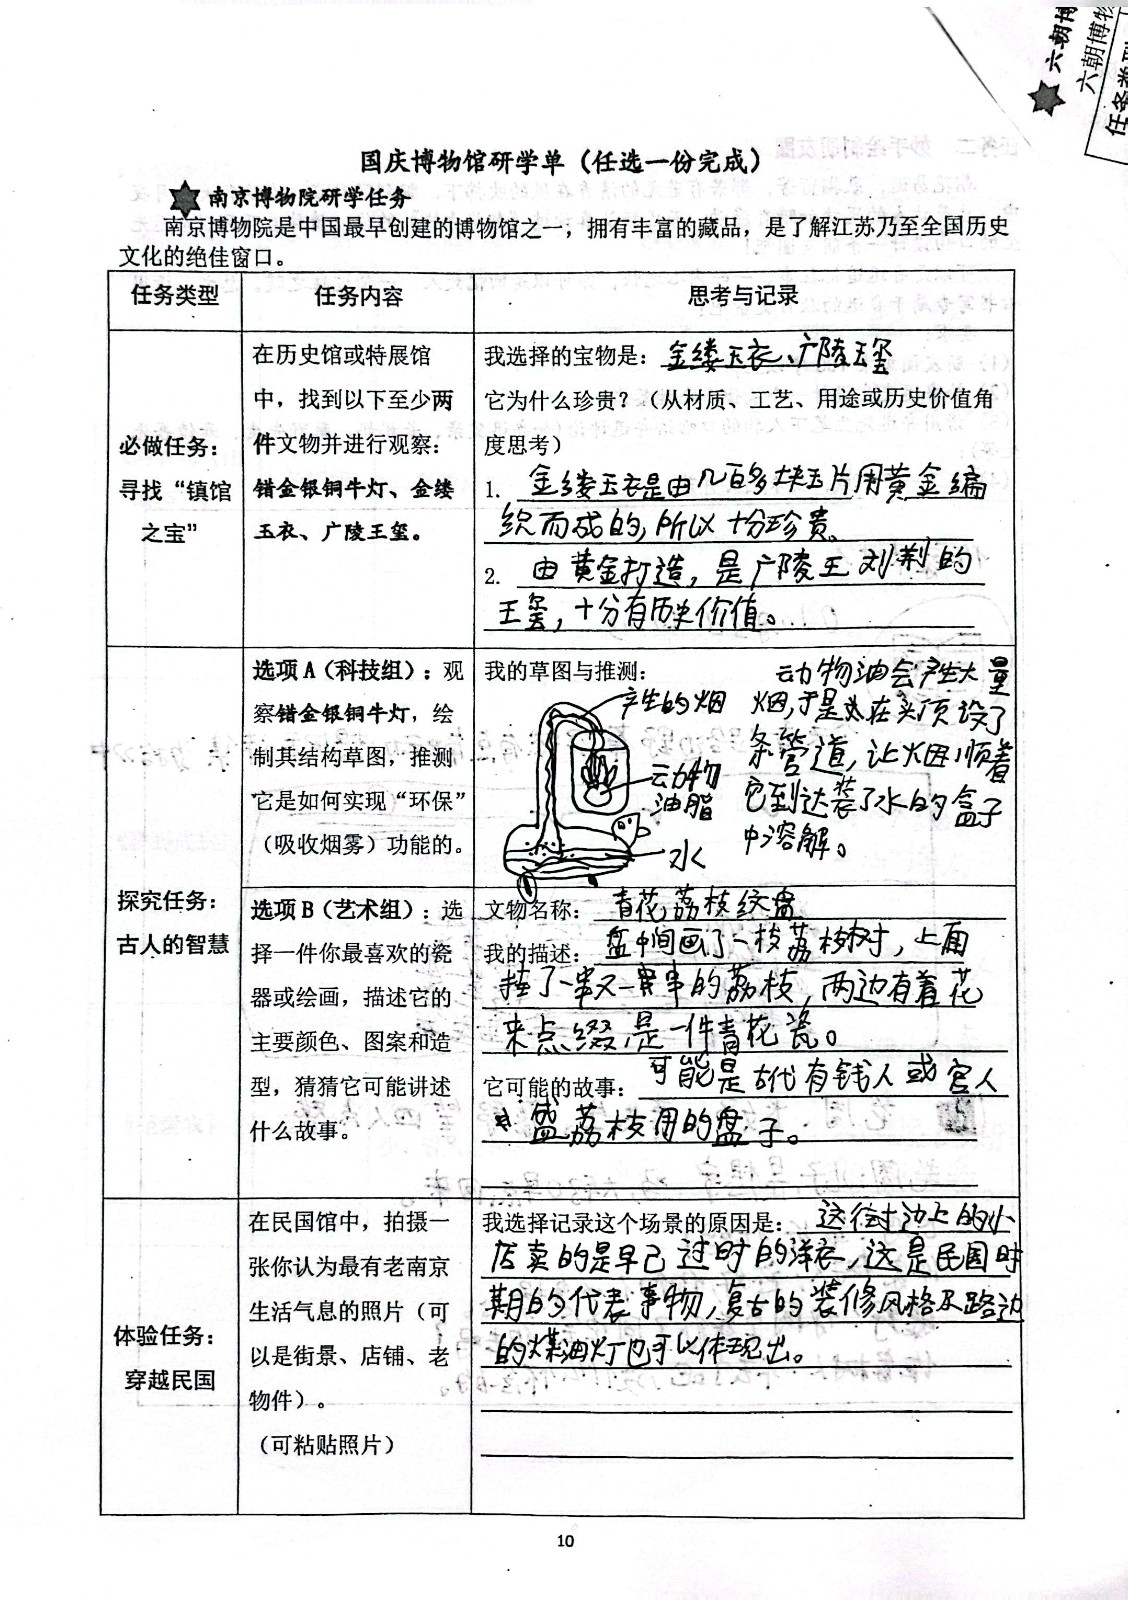 六朝博
六朝博物
任务类型
国庆博物馆研学单（任选一份完成）
南京博物院研学任务
南京博物院是中国最早创建的博物馆之一，拥有丰富的藏品，是了解江苏乃至全国历史
文化的绝佳窗口。
任务类型
任务内容
思考与记录
必做任务：
寻找“镇馆
之宝”
在历史馆或特展馆
中，找到以下至少两
件文物并进行观察：
错金银铜牛灯、金缕
玉衣、广陵王玺。
我选择的宝物是：金缕玉衣、广陵王玺
它为什么珍贵？（从材质、工艺、用途或历史价值角
度思考）
1. 金缕玉衣是由几百多块玉片用黄金编
织而成的,所以十分珍贵。
2. 由黄金打造，是广陵王刘荆的
王玺，十分有历史价值。
探究任务：
古人的智慧
选项A（科技组）：观
察错金银铜牛灯，绘
制其结构草图，推测
它是如何实现“环保”
（吸收烟雾）功能的。
我的草图与推测：
产生的烟
动物
油脂
水
动物油会产生大量
烟,于是在头顶设了
条管道，让烟顺着
它到达装了水的盒子
中溶解。
选项B（艺术组）：选
择一件你最喜欢的瓷
器或绘画，描述它的
主要颜色、图案和造
型，猜猜它可能讲述
什么故事。
文物名称：青花荔枝纹盘
我的描述：盘中间画了一枝荔枝树，上面
挂了一串又一串的荔枝，两边有着花
来点缀,是一件青花瓷。
它可能的故事：可能是古代有钱人或官人
盛荔枝用的盘子。
体验任务：
穿越民国
在民国馆中，拍摄一
张你认为最有老南京
生活气息的照片（可
以是街景、店铺、老
物件）。
（可粘贴照片）
我选择记录这个场景的原因是：这街边上的小
店卖的是早已过时的洋衣,这是民国时
期的代表事物，复古的装修风格及路边
的煤油灯也可以体现出。
10